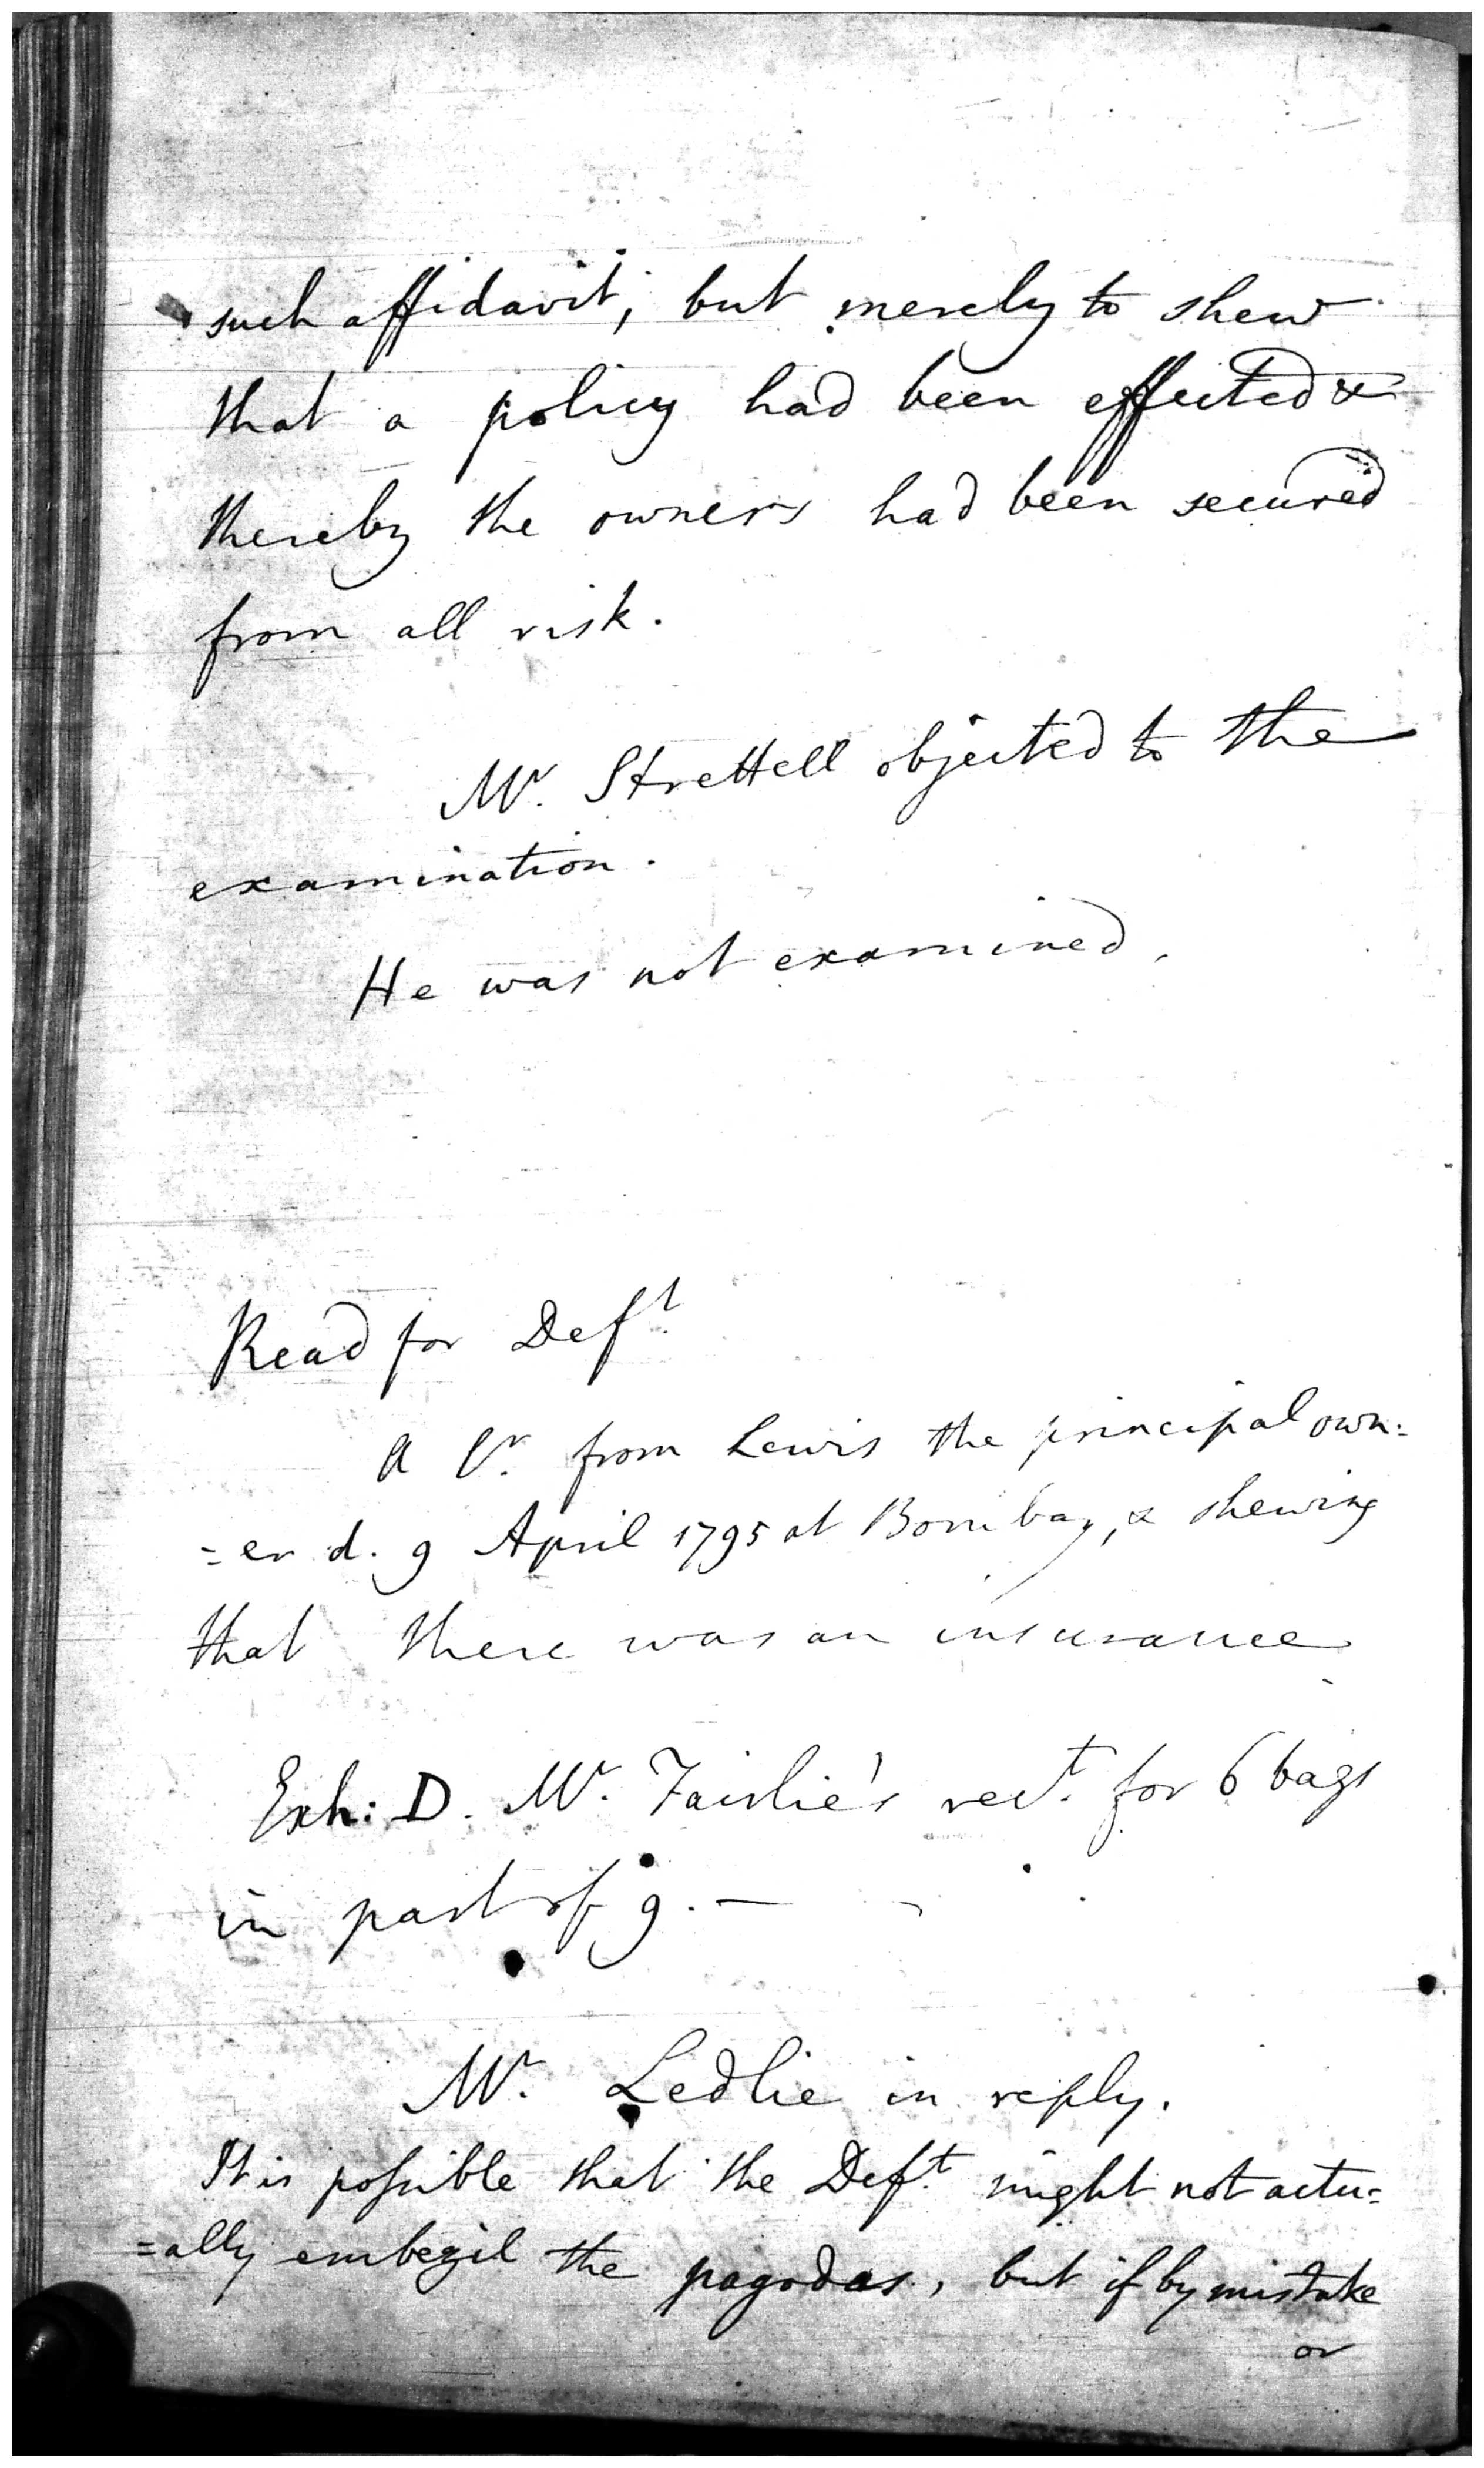 such affidavit, but merely to shew
that a policy had been effected &
thereby the owners had been secured
from all risk.
Mr. Strettell objected to the
examination.
He was not examined.
Read for Deft.
A lr. from Lewis the principal own:
=er d. 9 April 1795 at Bombay, & shewing
that there was an insurance
Exh: D. Mr. Fairlie's rect. for 6 bags
in part of 9. —
Mr. Ledlie in reply.
It is possible that the Deft. might not actu=
=ally embezil the pagodas, but if by mistake
or